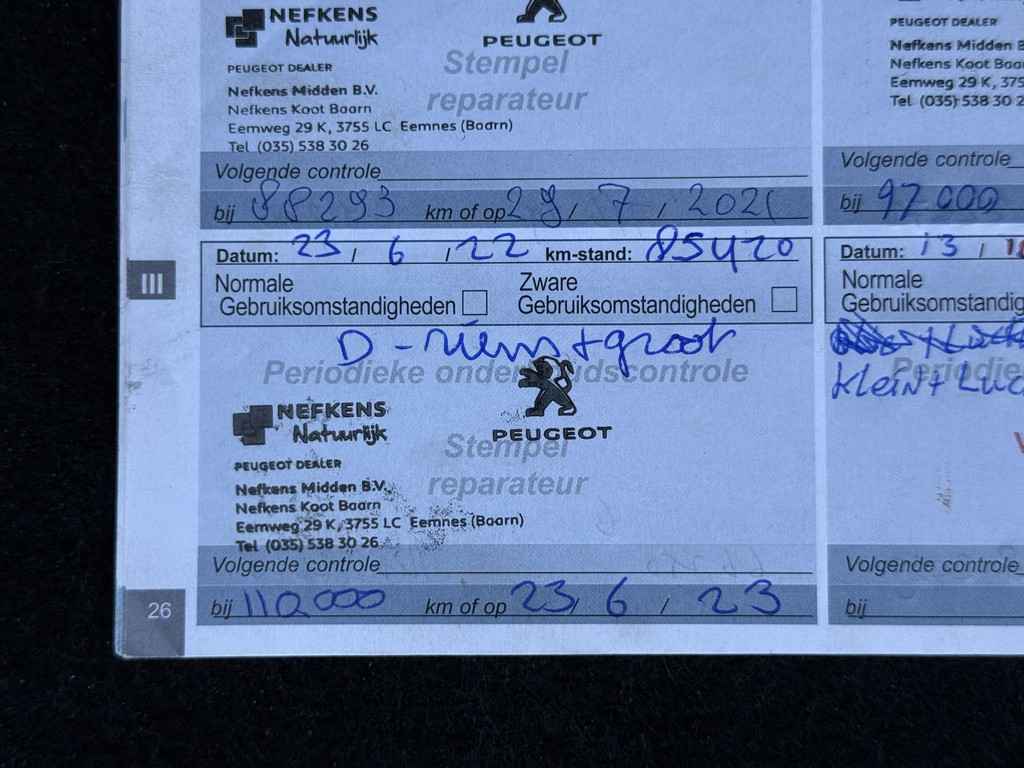 NEFKENS
Natuurlijk
PEUGEOT
PEUGEOT DEALER
Stempel
reparateur
Nefkens Midden B.V.
Nefkens Koot Baarn
Eemweg 29 K, 3755 LC Eemnes (Baarn)
Tel (035) 538 30 26
Volgende controle
bij 88293 km of op 29 / 7 / 2021
Datum: 23 / 6 / 22 km-stand: 85420
Normale
Gebruiksomstandigheden
Zware
Gebruiksomstandigheden
III
D-riem+groot
Periodieke onderhoudscontrole
NEFKENS
Natuurlijk
PEUGEOT
PEUGEOT DEALER
Stempel
reparateur
Nefkens Midden B.V.
Nefkens Koot Baarn
Eemweg 29 K, 3755 LC Eemnes (Baarn)
Tel (035) 538 30 26
Volgende controle
bij 110000 km of op 23 / 6 / 23
26
PEUGEOT DEALER
Nefkens Midden
Nefkens Koot Baa
Eemweg 29 K, 375
Tel (035) 538 30 2
Volgende controle
bij 97000
Datum: 13 /
Normale
Gebruiksomstandig
Klein+
Periodie
Volgende controle
bij